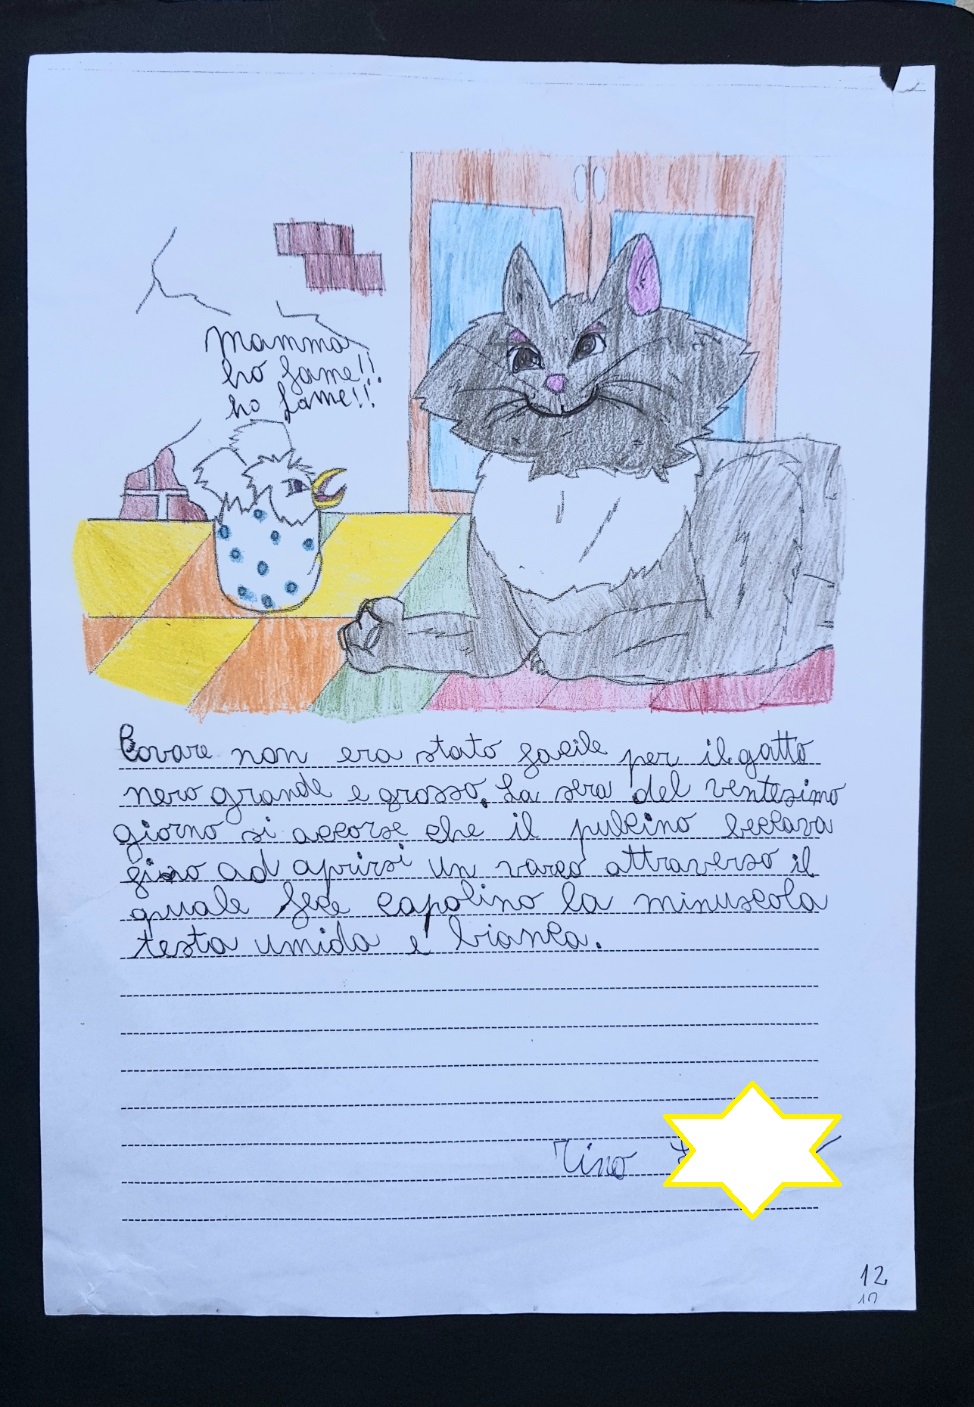 Mamma
ho fame!!
ho fame!!
Covare non era stato facile per il gatto
nero grande e grosso. La sera del ventesimo
giorno si accorse che il pulcino beccava
fino ad aprirsi un varco attraverso il
quale fece capolino la minuscola
testa umida e bianca.
Tino
12